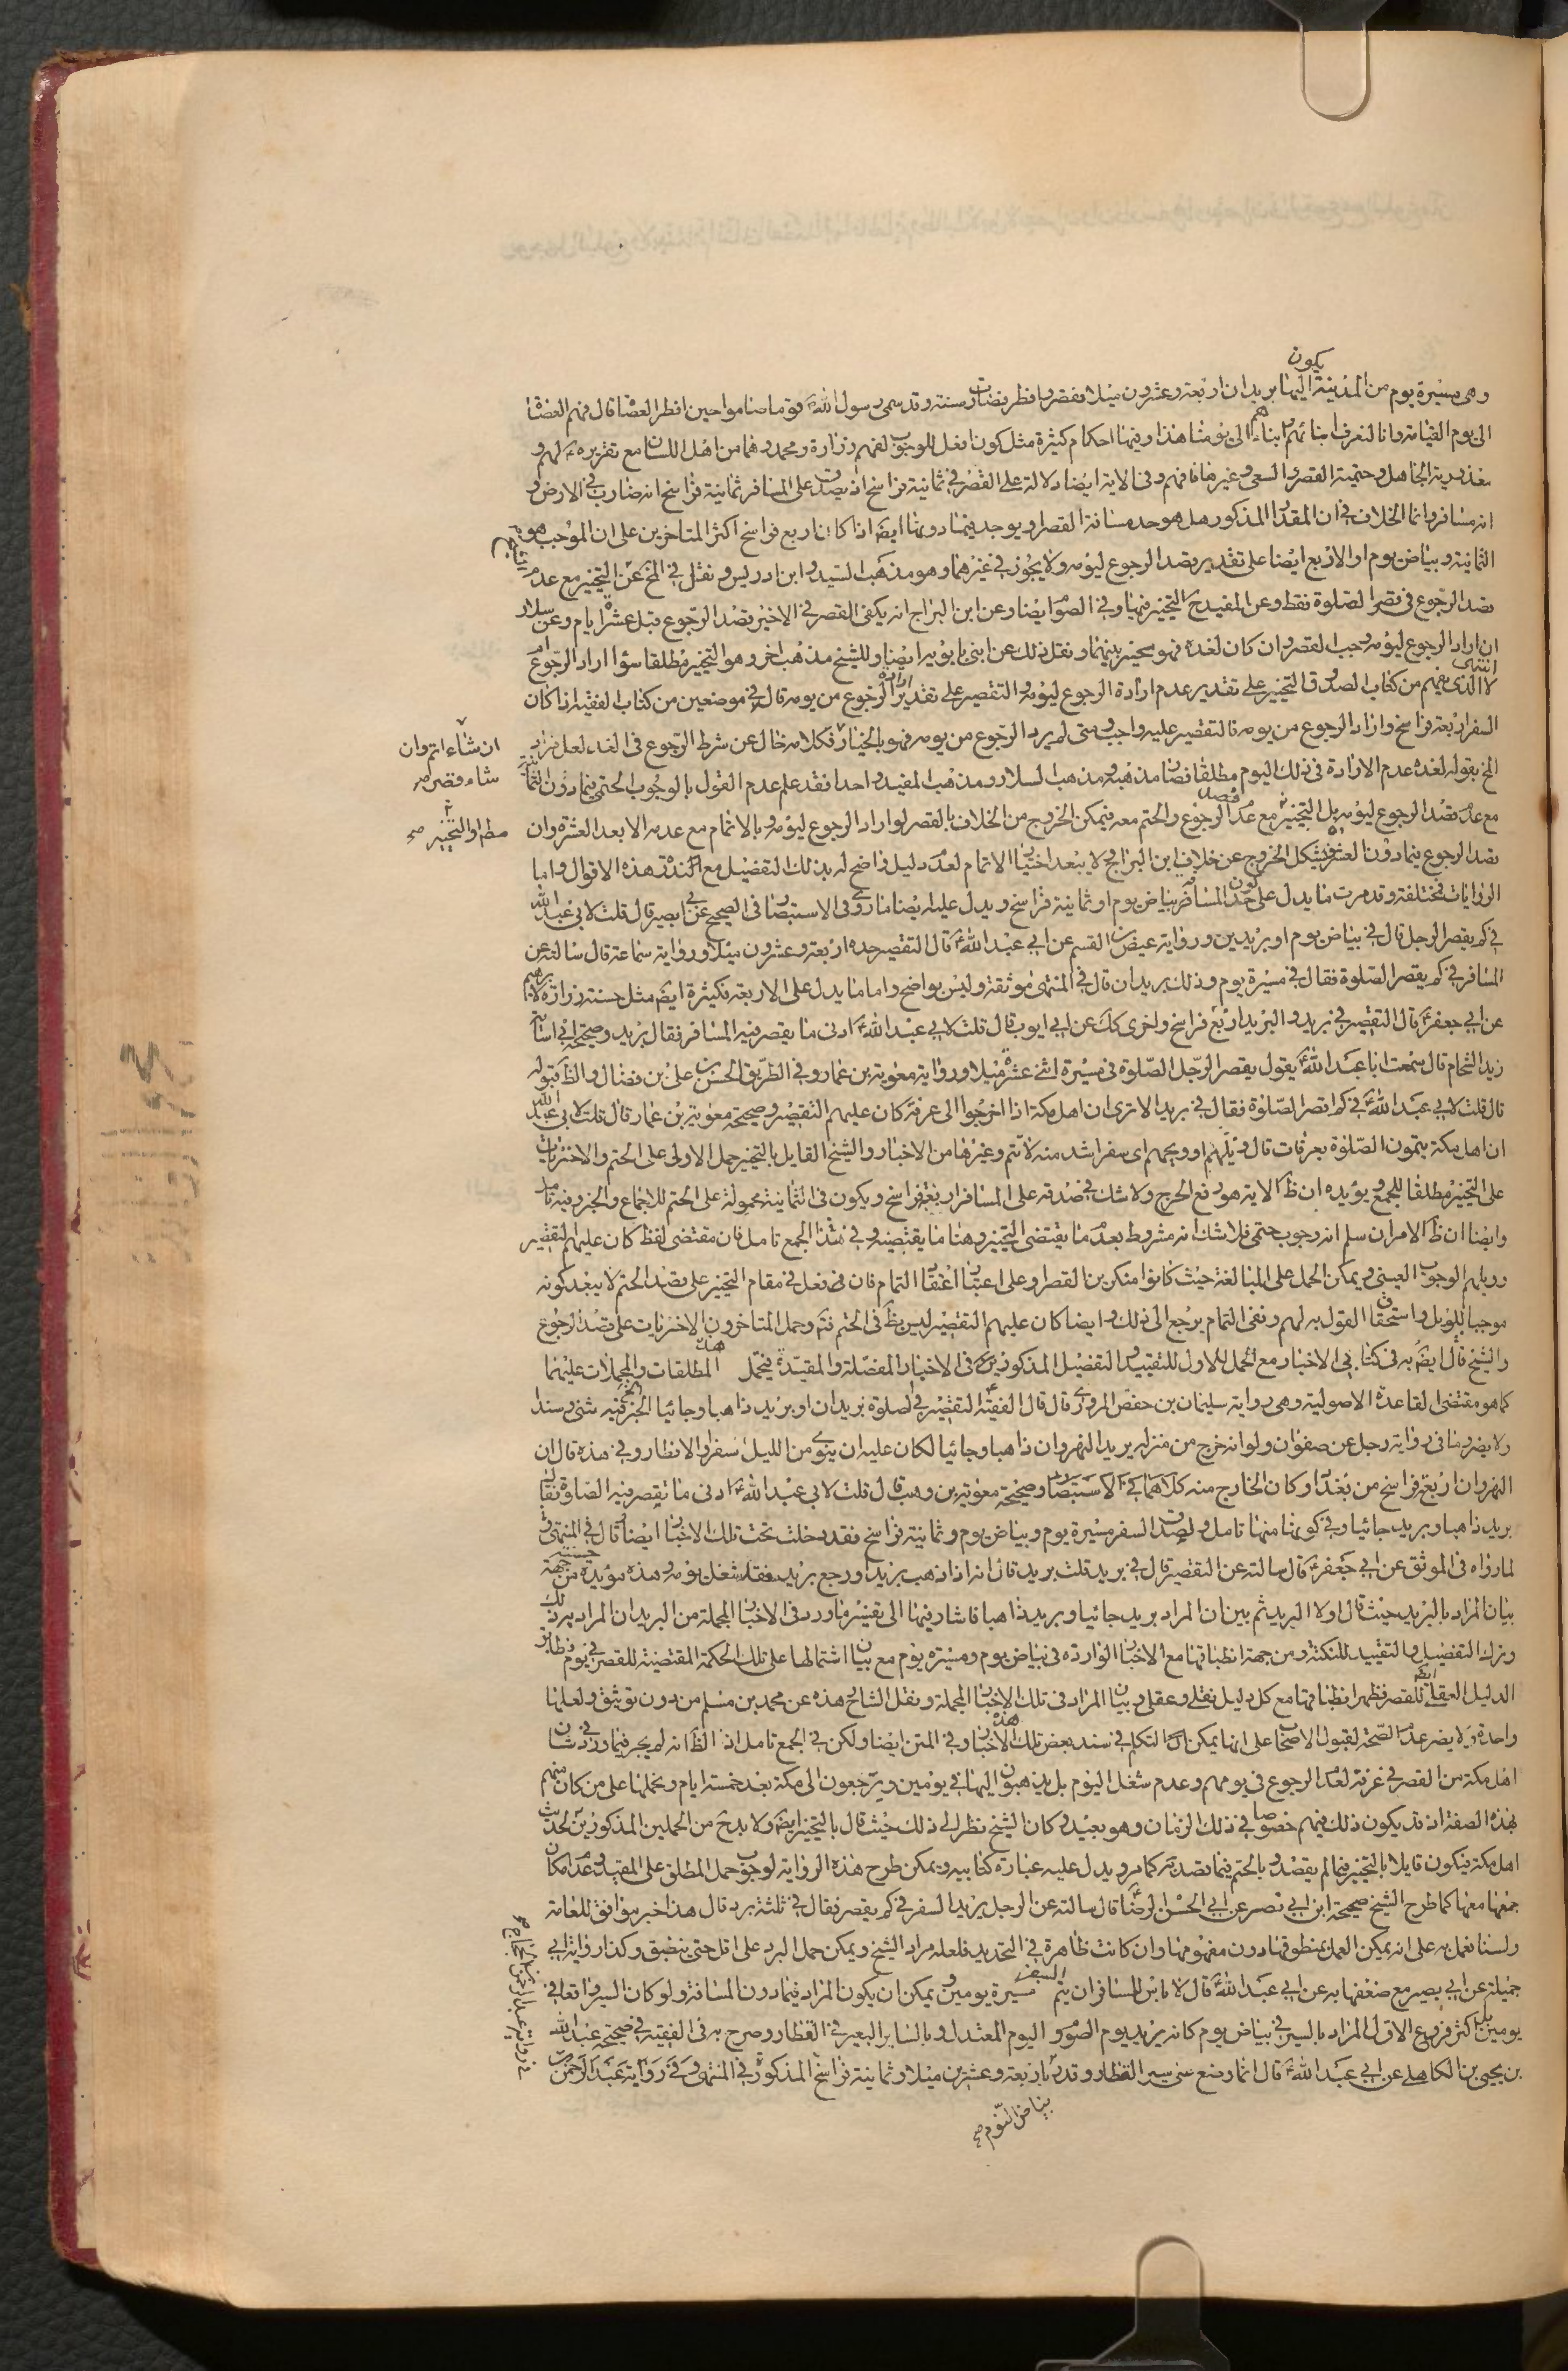 يكون
وهى مسيرة يوم من المدينة اليها بريدان اربعة وعشرون ميلا فقصر وافطر فصارت سنة وقد سمى رسول الله ص قوما صاموا حين افطر العصاة قال فهم العصاة
الى يوم القيامة وانا لنعرف ابنائهم وابناء ابنائهم الى يومنا هذا وفيها احكام كثيرة مثل كون افعل للوجوب لفهم زرارة ومحمد وهما من اهل اللسان مع تقريره ع لهم و
معذورية الجاهل وحتمية القصر السعى وغيرها فافهم وفى الاية ايضا دلالة على القصر فى ثمانية فراسخ اذ يصدق على المسافر ثمانية فراسخ انه ضارب فى الارض و
انه مسافر وانما الخلاف فى ان المقدار المذكور هل هو حد مسافة القصر او يوجد فيما دونها ايضا اذا كانا اربع فراسخ اكثر المتاخرين على ان الموجب هو
الثمانية وبياض يوم او الاربع ايضا على تقدير قصد الرجوع ليومه ولا يجوز فى غيرهما وهو مذهب السيد وابن ادريس ونقل فى المخ عن التخيير مع عدم
قصد الرجوع فى قصر الصلوة فقط وعن المفيد ره التخيير فيها وفى الصوم ايضا وعن ابن البراج انه يكفى القصر فى الاخير قصد الرجوع قبل عشرة ايام وعن سلار
ان اراد الرجوع ليومه وجب القصر وان كان لغده فهو مخير بينهما ونقل ذلك عن ابنى بابويه ايضا وللشيخ مذهب اخر وهو التخيير مطلقا سواء اراد الرجوع ام
لا انتهى الذى يفهم من كتاب الصدوق التخيير على تقدير عدم ارادة الرجوع ليومه والتقصير على تقدير ارادة الرجوع من يومه قال فى موضعين من كتاب الفقيه اذا كان
السفر اربعة فراسخ واراد الرجوع من يومه فالتقصير عليه واجب ومتى لم يرد الرجوع من يومه فهو بالخيار فكلامه خال عن شرط الرجوع فى الغد لعل مراد
ان شاء اتم وان
شاء قصر
المخ بقوله لغده عدم الارادة فى ذلك اليوم مطلقا فصار مذهبه ومذهب السلار ومذهب المفيد واحدا فقد علم عدم القول بالوجوب الحتمى فيما دون الثمانية
مع عدم قصد الرجوع ليومه بل التخيير مع عدم قصد الرجوع والحتم معه فيمكن الخروج من الخلاف بالقصر لو اراد الرجوع ليومه وبالاتمام مع عدمه الا بعد العشرة وان
مطلقا او التخيير صح
قصد الرجوع فيما دون العشرة فيشكل الخروج عن خلاف ابن البراج ولا يبعد اختيار الاتمام لعدم دليل واضح له بذلك التفضيل مع هذه الاقوال واما
الروايات فمختلفة وقد مرت ما يدل على كون حد المسافة بياض يوم او ثمانية فراسخ ويدل عليه ايضا ما روى فى الاستبصار فى الصحيح عن ابى بصير قال قلت لابى عبد الله ع
فى كم يقصر الرجل قال فى بياض يوم او بريدين ورواية عيص بن القسم عن ابى عبد الله ع قال التقصير حده اربعة وعشرون ميلا ورواية سماعة قال سالته عن
المسافر فى كم يقصر الصلوة فقال فى مسيرة يوم وذلك بريدان قال فى المنتهى موثقة وليس بواضح واما ما يدل على الاربعة فكثيرة ايضا مثل حسنة زرارة
عن ابى جعفر ع قال التقصير فى بريد والبريد اربع فراسخ واخرى كك عن ابى ايوب قال قلت لابى عبد الله ع ادنى ما يقصر فيه المسافر فقال بريد وصحيحة ابى اسامة
زيد الشحام قال سمعت ابا عبد الله ع يقول يقصر الرجل الصلوة فى مسيرة اثنى عشر ميلا ورواية معوية بن عمار وفى الطريق الحسن بن على بن فضال والظ قبوله
قال قلت لابى عبد الله ع فى كم اقصر الصلوة فقال فى بريد الا ترى ان اهل مكة اذا خرجوا الى عرفة كان عليهم التقصير وصحيحة معوية بن عمار قال قلت لابى عبد الله ع
ان اهل مكة يتمون الصلوة بعرفات قال ويلهم او ويحهم اى سفر اشد منه لا تتم وغيرها من الاخبار والشيخ القايل بالتخيير حمل الاولى على الحتم والاخيرات
على التخيير مطلقا للجمع ويؤيده ان ظ الاية هو رفع الحرج ولا شك فى صدقه على المسافر اربعة فراسخ ويكون فى الثمانية محمولة على الحتم للاجماع والخبر وفيه تامل
وايضا ان ظ الامر ان سلم انه وجوب حتمى فلا شك انه مشروط بعدم ما يقتضى التخيير وهنا ما يقتضيه وفى هذا الجمع تامل فان مقتضى لفظ كان عليهم التقصير
وويلهم الوجوب العينى ويمكن الحمل على المبالغة حيث كانوا منكرين القصر او على اعتبار اعتقاد التمام فان من فعل فى مقام التخيير على قصد الحتم لا يبعد كونه
موجبا للويل واستحقاق القول به لهم ونفى التمام يرجع الى ذلك وايضا كان عليهم التقصير ليس بظ فى الحتم فتم وحمل المتاخرون الاخيرتات على قصد الرجوع
والشيخ قال ايضا به فى كتابى الاخبار مع الحمل الاول للتقييد والتفضيل المذكورين فى الاخبار المفصلة والمقيدة فيحمل هذه المطلقات والمجملات عليهما
كما هو مقتضى القاعدة الاصولية وهى رواية سليمان بن حفص المروزى قال قال الفقيه ع التقصير فى الصلوة بريدان او بريد ذاهبا وجائيا الخبر وفيه شئ وسندا
ولا يضر وما فى رواية رجل عن صفوان ولو انه خرج من منزله يريد النهروان ذاهبا وجائيا لكان عليه ان ينوى من الليل سفرا والافطار وفى هذه قال ان
النهروان اربع فراسخ من بغداد وكان الخارج منه كلاهما فى الاستبصار وصحيحة معوية بن وهب قال قلت لابى عبد الله ع ادنى ما تقصر فيه الصلوة فقال
بريد ذاهبا وبريد جائيا وفى كونها منها تامل ولصدق السفر مسيرة يوم وبياض يوم وثمانية فراسخ فقد دخلت تحت تلك الاخبار ايضا قال فى المنتهى و
لما رواه فى الموثق عن ابى جعفر ع قال سالته عن التقصير قال فى بريد قلت بريد قال انه اذا ذهب بريدا ورجع بريدا فقد شغل يومه وهذه مؤيدة من جهة
بيان المراد بالبريد حيث قال اولا البريد ثم بين ان المراد بريد جائيا وبريد ذاهبا فاشار فيها الى تفسير ما ورد فى الاخبار المجملة من البريد ان المراد به ذلك
وترك التفضيل والتقييد للنكتة ومن جهة انطباقها مع الاخبار الواردة فى بياض يوم ومسيرة يوم مع بيان اشتمالها على تلك الحكمة المقتضية للقصر فى يوم
الدليل العقلى ايضا للقصر فظهر انطباقها مع كل دليل نقلى وعقلى وبيان المراد فى تلك الاخبار المجملة ونقل الشارح هذه عن محمد بن مسلم من دون توثيق ولعلها
واحدة ولا يضر عدم الصحة لقبول الاصحاب على انها يمكن التكلم فى سند بعض تلك الاخبار وفى المتن ايضا ولكن فى الجمع تامل اذ الظ انه لم يجر فيما ورد فى شان
اهل مكة من القصر فى عرفة لعدم الرجوع فى يومهم وعدم شغل اليوم بل يذهبون اليها فى يومين ويرجعون الى مكة بعد خمسة ايام وحملها على من كان منهم
بهذه الصفة اذ قد يكون ذلك فيهم خصوصا فى ذلك الزمان وهو بعيد وكان الشيخ نظر الى ذلك حيث قال بالتخيير ايضا ولا بد من الحملين المذكورين لحديث
اهل مكة فيكون قايلا بالتخيير فيما لم يقصد وبالحتم فيما قصد كما مر ويدل عليه عبارة كتابيه ويمكن طرح هذه الرواية لوجوب حمل المطلق على المقيد وعدم امكان
جمعها معها كما طرح الشيخ صحيحة ابن ابى نصر عن ابى الحسن الرضا ع قال سالته عن الرجل يريد السفر فى كم يقصر فقال فى ثلثة برد قال هذا خبر موافق للعامة
ولسنا نعمل به على انه يمكن العمل بمنطوقها دون مفهومها وان كانت ظاهرة فى التحديد فلعله مراد الشيخ ويمكن حمل البرد على اقل حتى ينطبق وكذا رواية ابى
جميلة عن ابى بصير مع ضعفها به عن ابى عبد الله ع قال لا باس للمسافر ان يتم السفر مسيرة يومين ويمكن ان يكون المراد فيما دون المسافة ولو كان السير واقعا فى
يومين بل اكثر فروع الاول المراد بالسير فى بياض يوم كانه يريد يوم الصوم واليوم المعتدل وبالسائر البعير فى القطار وصرح به فى الفقيه فى صحيحة عبد الله
بن يحيى بن الكاهلى عن ابى عبد الله ع قال انما وضع على سير القطار وقدر باربعة وعشرين ميلا وثمانية فراسخ المذكور فى المنتهى وفى رواية عبد الرحمن
بياض اليوم صح